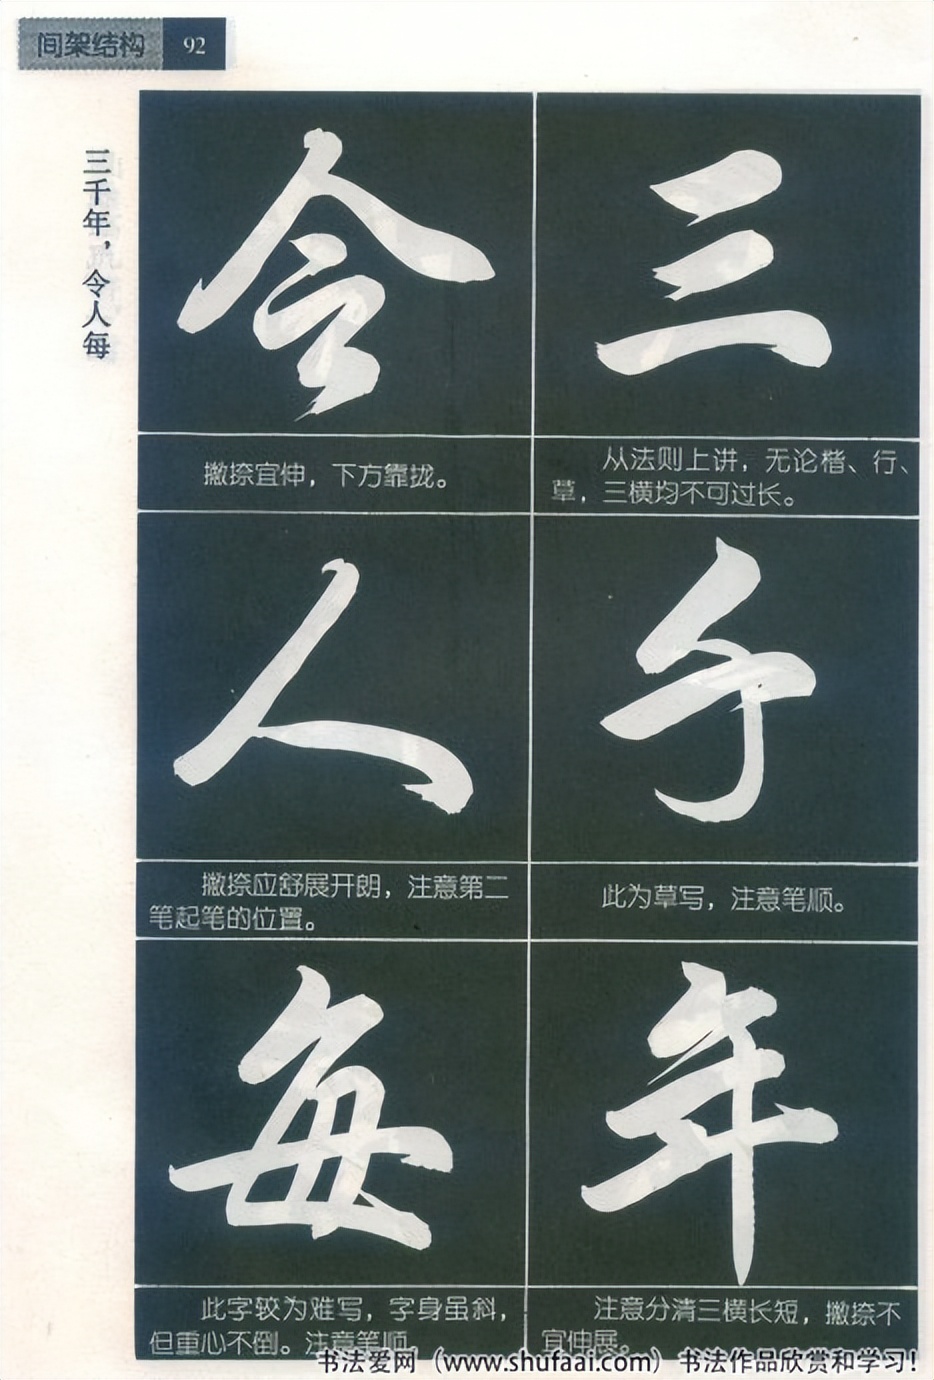 间架结构 92
三千年，令人每
三
从法则上讲，无论楷、行、
草，三横均不可过长。
千
此为草写，注意笔顺。
年
注意分清三横长短，撇捺不
宜伸展。
令
撇捺宜伸，下方靠拢。
人
撇捺应舒展开朗，注意第二
笔起笔的位置。
每
此字较为难写，字身虽斜，
但重心不倒。注意笔顺。
书法爱网（www.shufaai.com）书法作品欣赏和学习！